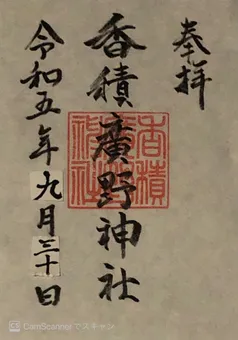 奉拝
香積廣野神社
香積神社
令和五年九月三十日
CamScannerでスキャン